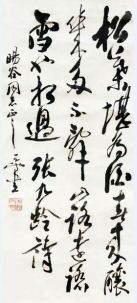 松葉堪為酒春來釀
幾多不辭山路遠踏
雪也相過 張九齡詩
暘谷同志正之